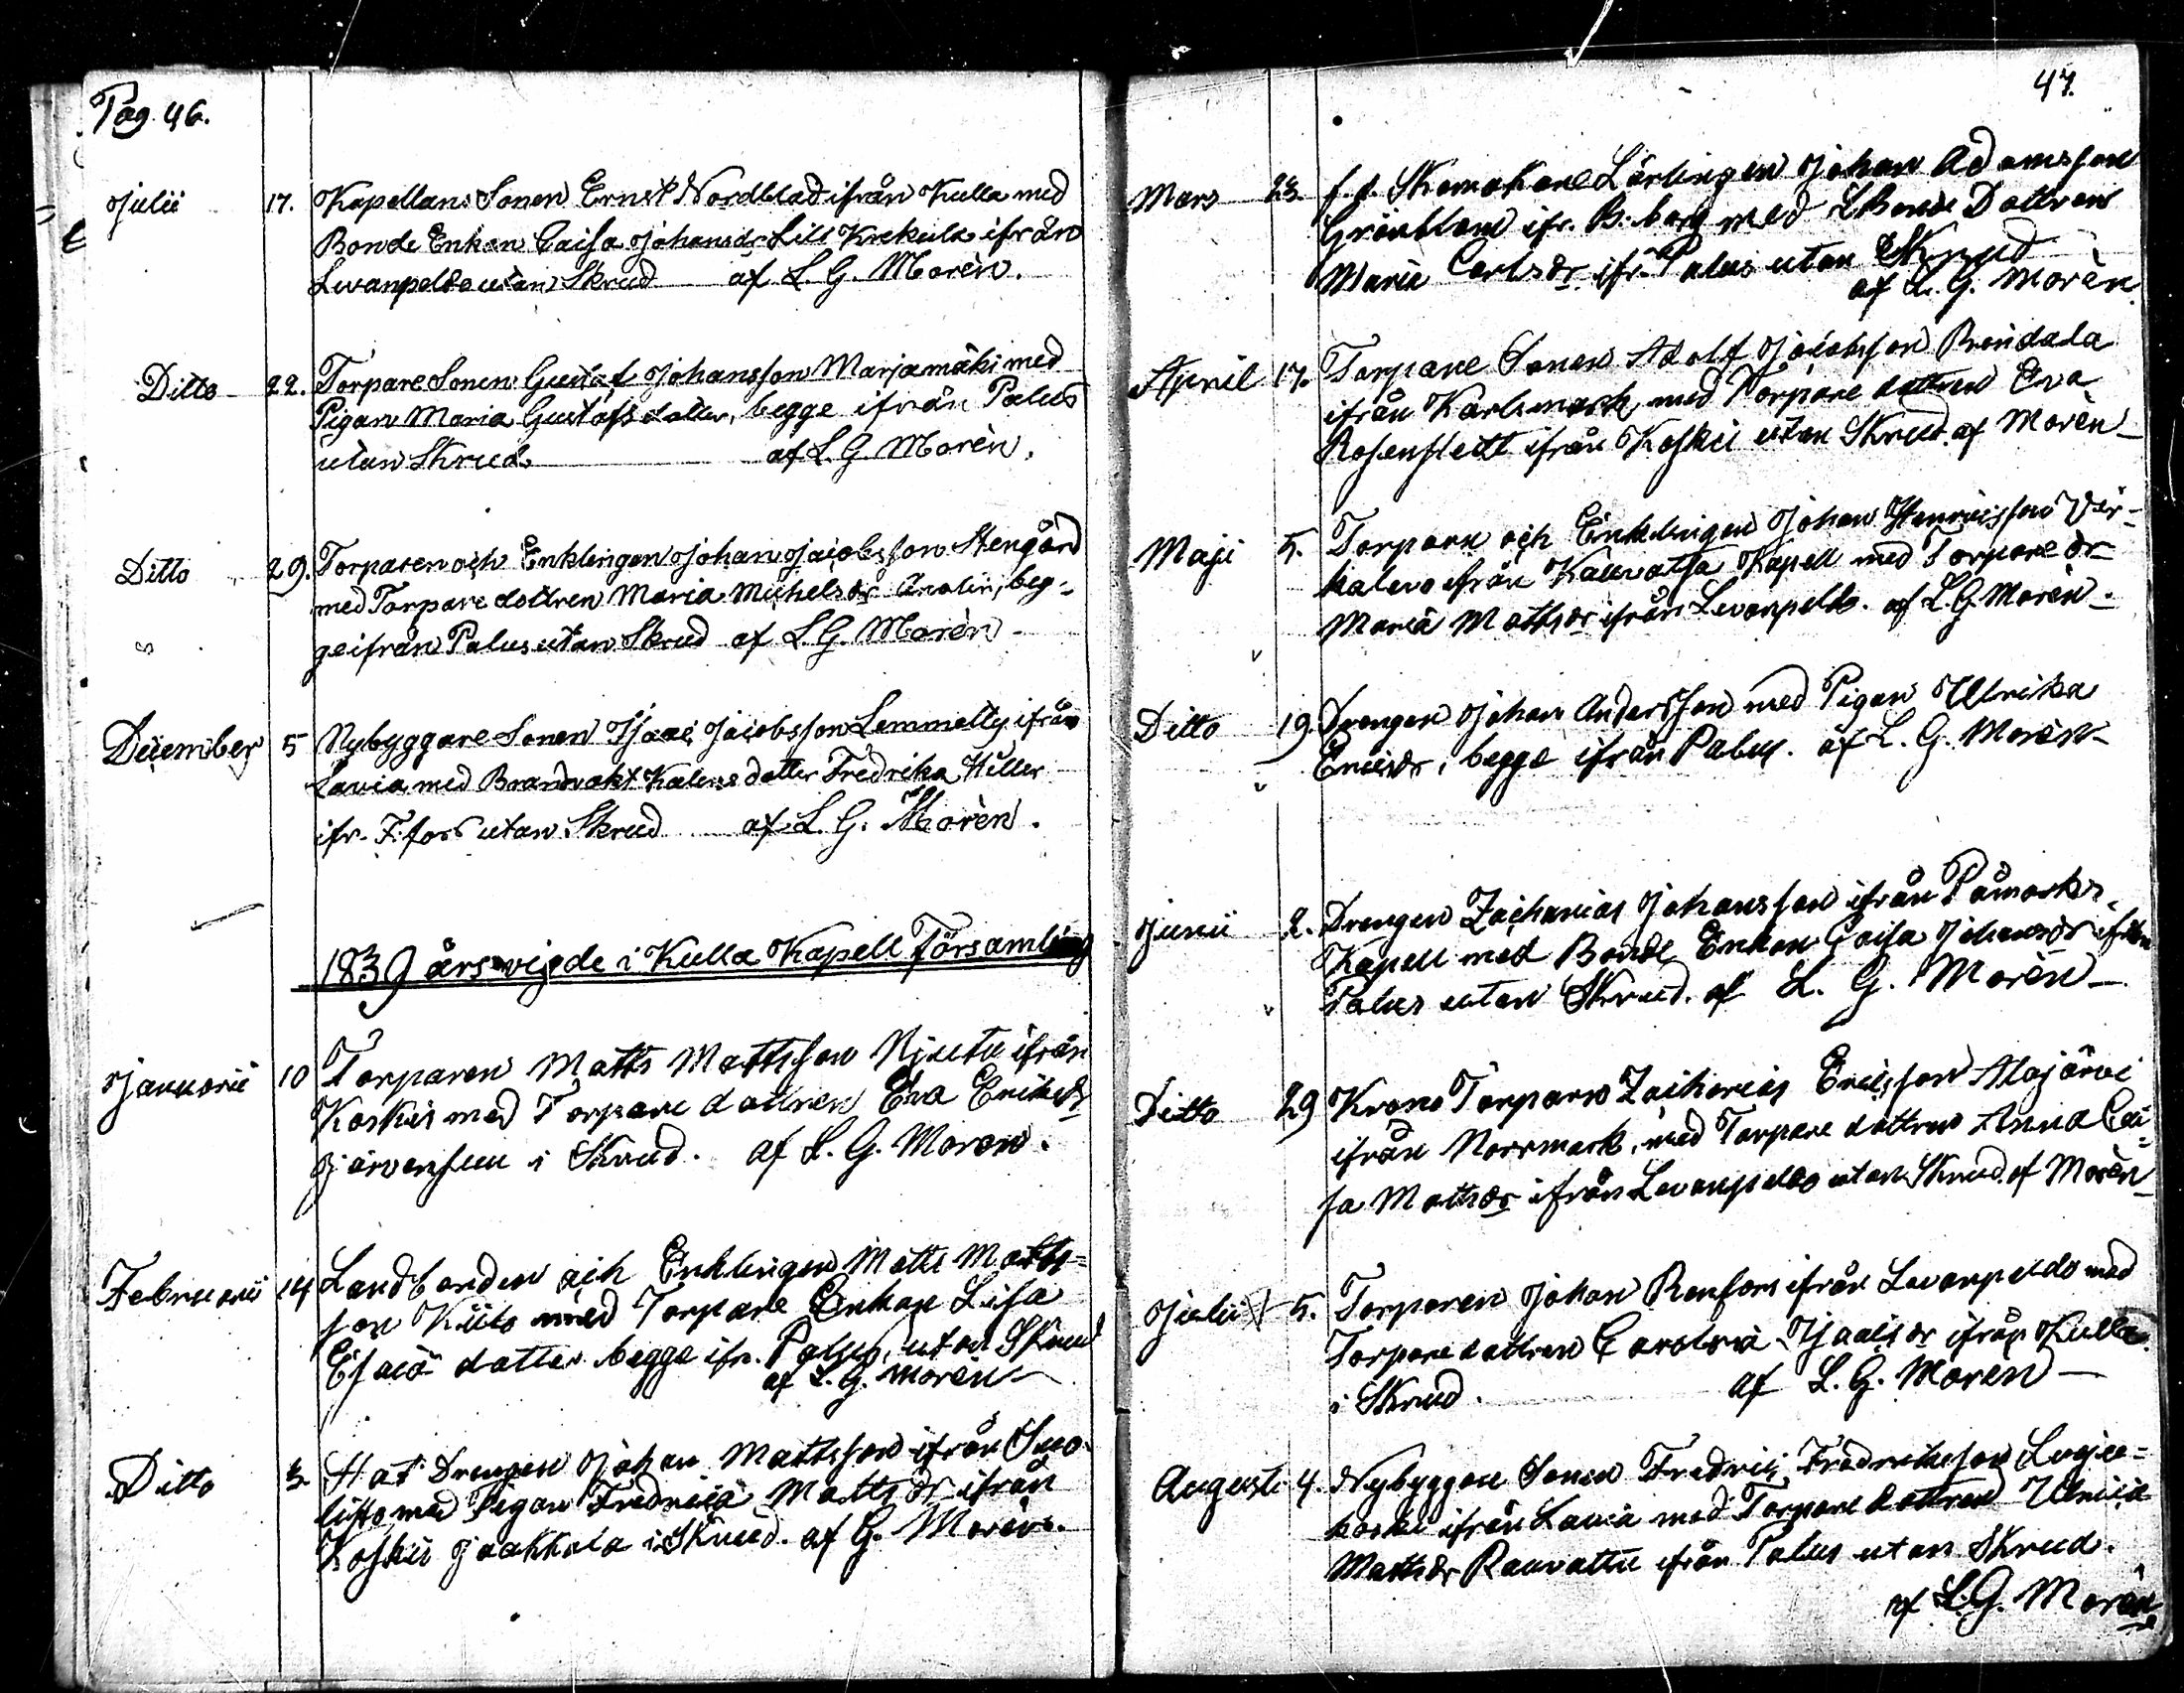 Pag. 46.
Julii 17. Kapellans Sonen Ernst Nordblad ifrån Kulla med
Bonde Enkan Caisa Johansdr Lill Krekula ifrån
Levanpeldo utan Skrud af L. G. Morèn.
Ditto 22. Torpare Sonen Gustaf Johansson Marjamäki med
Pigan Maria Gustafs dotter, begge ifrån Palus
utan Skrud. af L. G. Morèn.
Ditto 29. Torparen och Enklingen Johan Jacobsson Stengård
med Torpare dottren Maria Michelsdr beg-
ge ifrån Palus utan Skrud af L G. Morèn
December 5 Nybyggare Sonen Isaac Jacobsson Lemmetty ifrån
Lavia med Brandvakt Karlens dotter Fredrika Hiller
ifr. F.fors utan Skrud af L. G. Morèn.
1839 års vigde i Kulla Kapell församling
Januarii 10 Torparen Matts Mattsson Njutu ifrån
Koskis med Torpare dottren Eva Eriksdr
Järvensuu i Skrud. af L. G. Moren.
Februarii 14 Landbonden och Enklingen Matts Matts=
son Kiito med Torpare Enkan Lisa
Esaiä dotter begge ifr. Palus, utan Skrud
af L. G. Morèn
Ditto Drengen Johan Mattsson ifrån Suo-
med Pigan Fredrica Mattsdr ifrån
Koskis Jaakkola i Skrud. af G. Morèn.
47.
Mars 23. f. d. Skomakare Lärlingen Johan Adamsson
Grönblom ifr. B:borg med Bonde Dottren
Maria Carlsdr ifr. Palus utan Skrud
af L. G. Morèn.
April 17. Torpare Sonen Adolf Jacobsson Brendala
ifrån Karlsmark med Torpare dottren Eva
Rosenstedt ifrån Koskis utan Skrud. af Morèn
Maji 5. Torparen och Enklingen Johan Henricsson Vär-
kalevo ifrån Kauvatsa Kapell med Torpare dr
Maria Mattsdr ifrån Levanpeldo. af L. G. Morèn.
Ditto 19. Drengen Johan Andersson med Pigan Ulrika
Ericsdr, begge ifrån Palus. af L. G. Morèn
Junii 2. Drengen Zacharias Johansson ifrån Påmarks
Kapell med Bonde Enkan Caisa Johansdr ifrån
Palus utan Skrud. af L. G. Morèn
Ditto 29 Krono Torparen Zacharias Ericsson Alajärvi
ifrån Norrmark, med Torpare dottren Anna Cai-
sa Mattsdr ifrån Levanpeldo utan Skrud af Morèn
Julii 5. Torparen Johan Renfors ifrån Levanpeldo med
Torpare dottren Carolina Isaacsdr ifrån Kulla
i Skrud. af L. G. Morèn
Augusti 4. Nybyggare Sonen Fredric Fredriksson
koski ifrån Lavia med Torpare dottren Ulrica
Mattsdr Rauvattu ifrån Palus utan Skrud.
af L. G. Morèn.